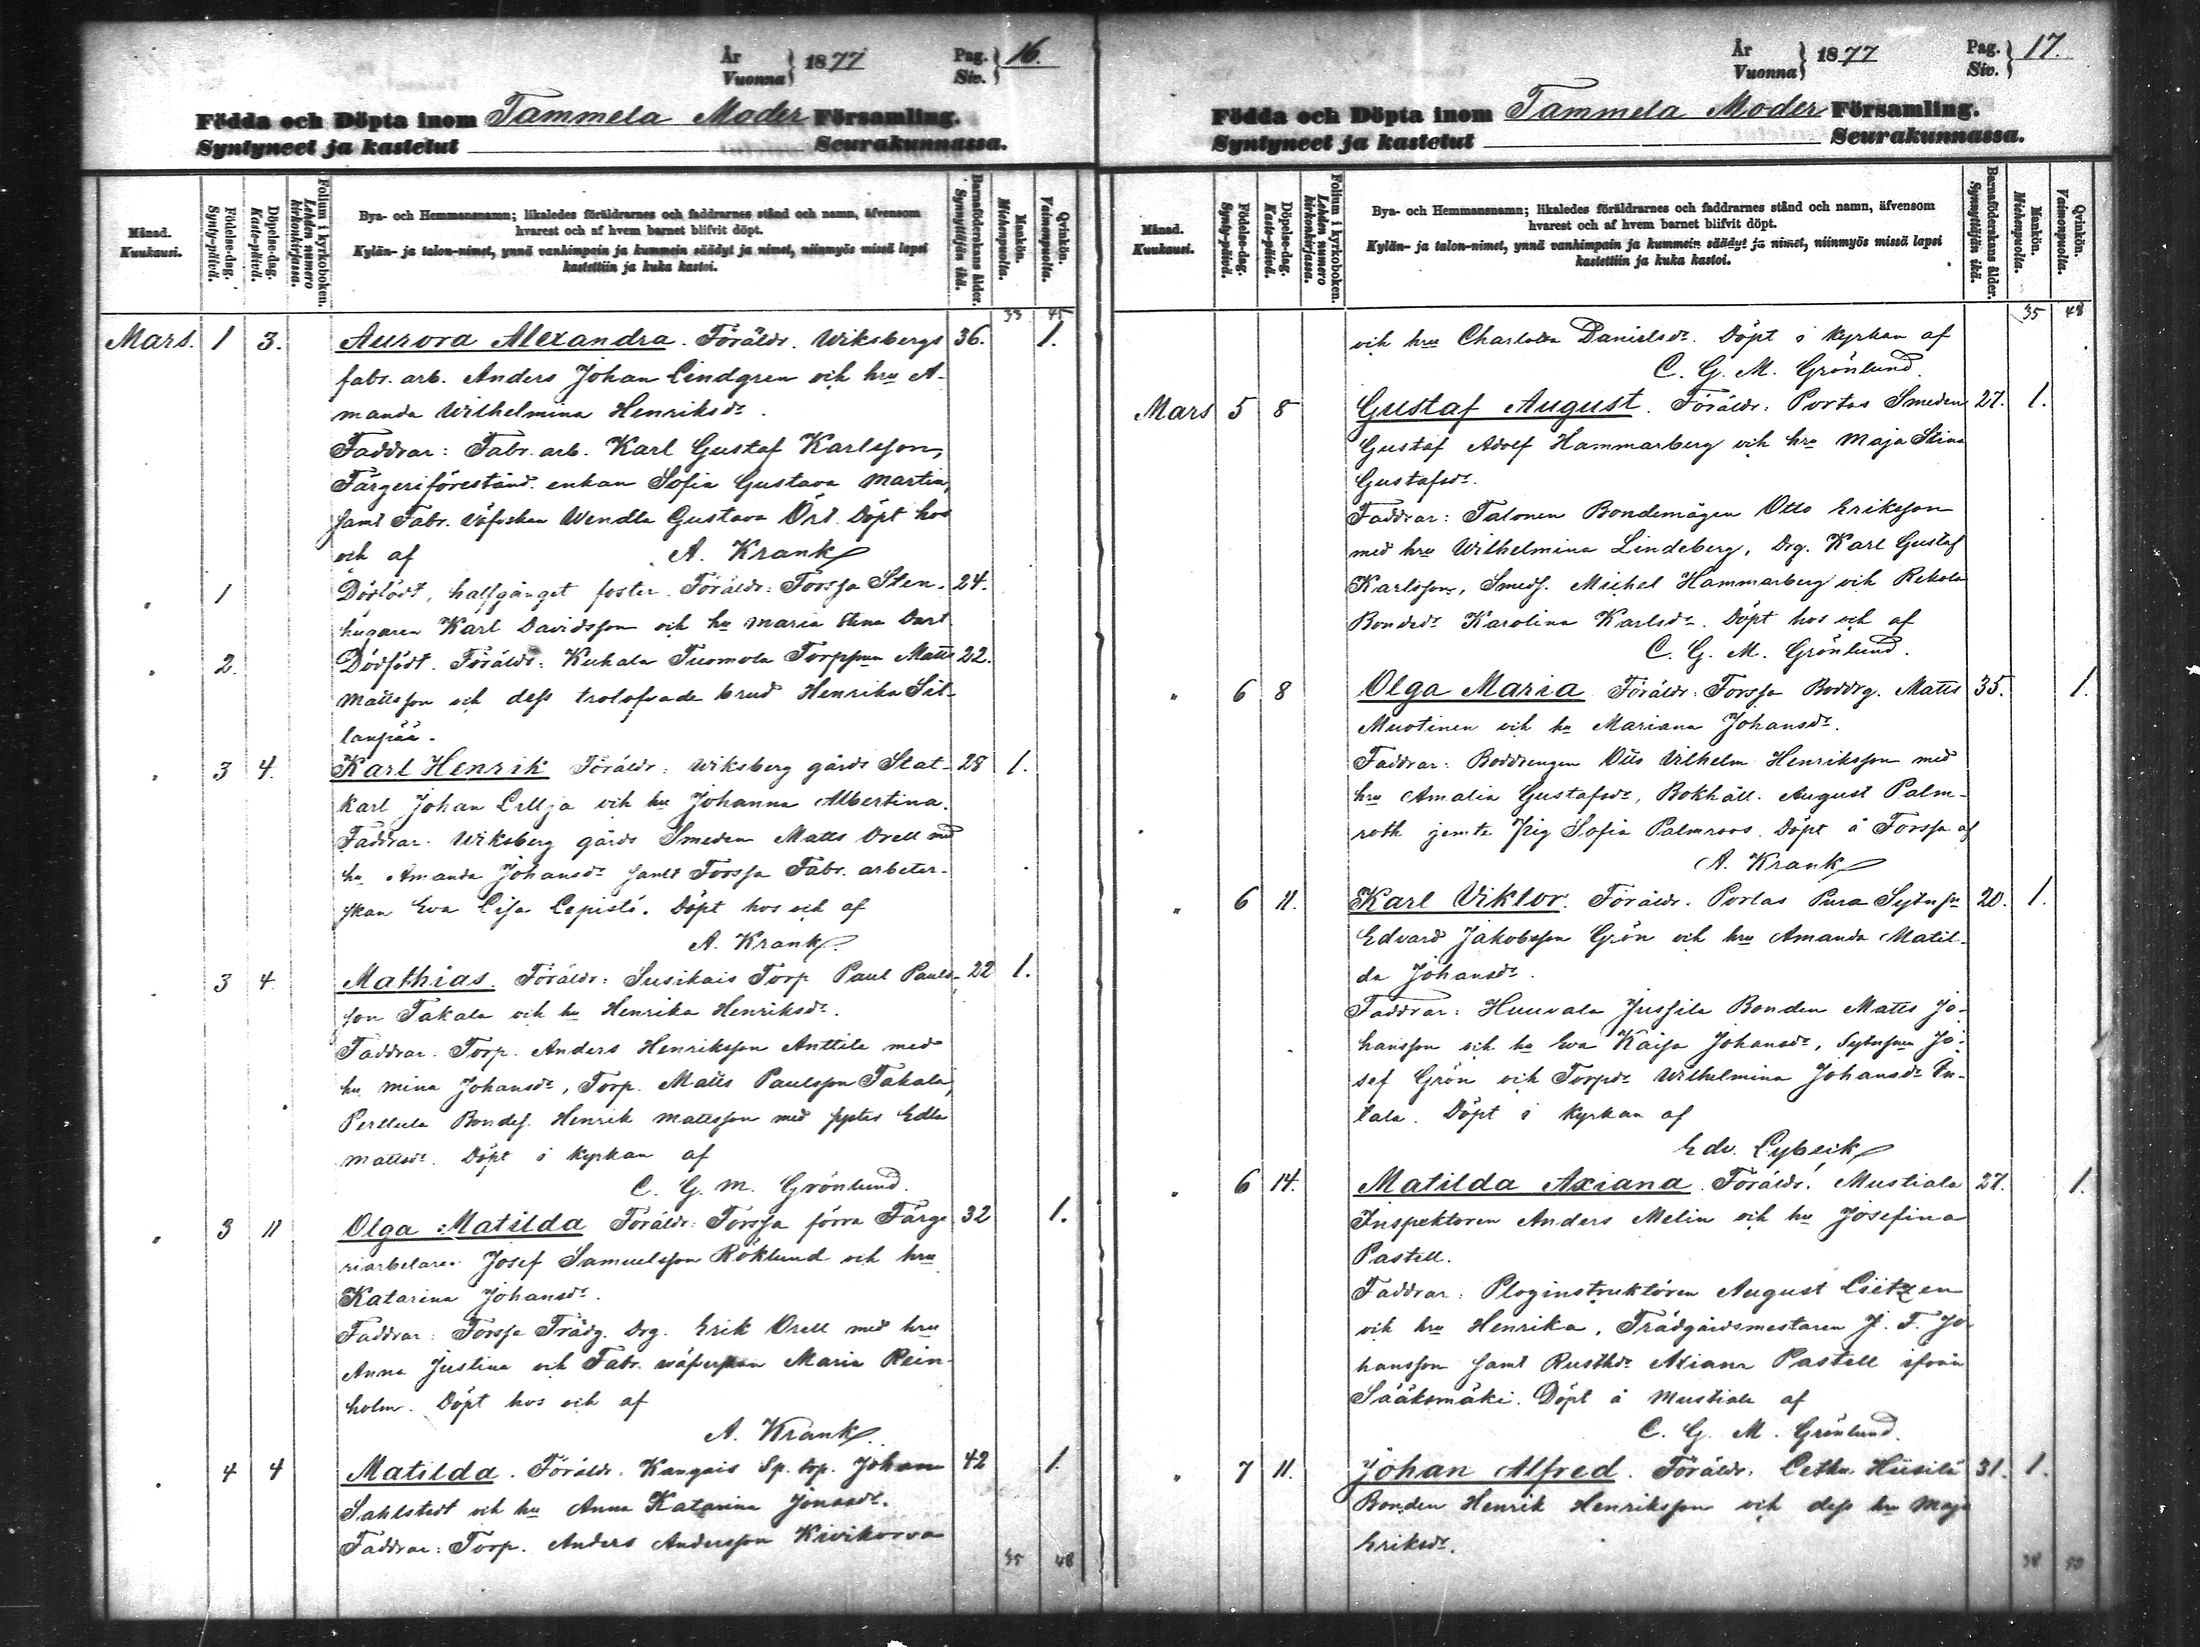 År
Vuonna } 1877 Pag.
Siv. } 16.
Födda och Döpta inom Tammela Moder Församling.
Syntyneet ja kastetut Seurakunnassa.
Månad.
Kuukausi.
Födelse-dag.
Synty-päivä.
Döpelse-dag.
Kaste-päivä.
Folium i kyrkoboken.
Lehden numero
kirkonkirjassa.
Bya- och Hemmansnamn; likaledes föräldrarnes och faddrarnes stånd och namn, äfvensom
hvarest och af hvem barnet blifvit döpt.
Kylän- ja talon-nimet, ynnä vanhimpain ja kummein säädyt ja nimet, niinmyös missä lapsi
kastettiin ja kuka kastoi.
Barnaföderskans ålder.
Synnyttäjän ikä.
Mankön.
Miehenpuolta.
Qvinkön.
Vaimonpuolta.
33 45
Mars. 1 3. Aurora Alexandra. Föräldr. Wiksbergs 36. 1.
fabr. arb. Anders Johan Lindgren och hru A-
manda Wilhelmina Henriksdr.
Faddrar: Fabr. arb. Karl Gustaf Karlsson,
Färgeriförestånd. enkan Sofia Gustava Martin,
samt Fabr. väfvskan Wendla Gustava Öst. Döpt hos
och af A. Krank
" 1 Dödfödt, halfgånget foster. Föräldr: Forssa Sten- 24.
huggaren Karl Davidsson och hu Maria Stina Dart
" 2. Dödfödt. Föräldr: Kuhala Tuomola Torppson Matts 22.
Mattsson och dess trolofvade brud Henrika Sil-
lanpää.
" 3 4. Karl Henrik Föräldr: Wiksberg gårds Stat- 28 1.
karl Johan Lillja och hu Johanna Albertina.
Faddrar. Wiksberg gårds Smeden Matts Orell med
hu Amanda Johansdr samt Forssa Fabr. arbeter-
skan Eva Lisa Lepistö. Döpt hos och af
A. Krank.
3 4 Mathias. Föräldr: Susikais Torp. Paul Pauls- 22 1.
son Takala och hu Henrika Henriksdr.
Faddrar. Torp. Anders Henriksson Anttila med
hu Mina Johansdr, Torp. Matts Paulsson Takala,
Perttula Bondes. Henrik Mattsson med syster Edla
Mattsdr. Döpt i kyrkan af
C. G. M. Grönlund.
" 3 11 Olga Matilda Föräldr: Forssa förra Färge- 32 1.
riarbetaren Josef Samuelsson Röklund och hru
Katarina Johansdr.
Faddrar: Forssa Trädg. Drg. Erik Orell med hru
Anna Justina och Fabr. väferskan Maria Rein-
holm. Döpt hos och af
A. Krank.
" 4 4 Matilda. Föräldr. Kangais Sp. torp. Johan 42 1.
Sahlstedt och hu Anna Katarina Jonasdr.
Faddrar: Torp. Anders Andersson Kivikorva
35 48
År
Vuonna } 1877 Pag.
Siv. } 17.
Födda och Döpta inom Tammela Moder Församling.
Syntyneet ja kastetut Seurakunnassa.
Månad.
Kuukausi.
Födelse-dag.
Synty-päivä.
Döpelse-dag.
Kaste-päivä.
Folium i kyrkoboken.
Lehden numero
kirkonkirjassa.
Bya- och Hemmansnamn; likaledes föräldrarnes och faddrarnes stånd och namn, äfvensom
hvarest och af hvem barnet blifvit döpt.
Kylän- ja talon-nimet, ynnä vanhimpain ja kummein säädyt ja nimet, niinmyös missä lapsi
kastettiin ja kuka kastoi.
Barnaföderskans ålder.
Synnyttäjän ikä.
Mankön.
Miehenpuolta.
Qvinkön.
Vaimonpuolta.
35 48
och hru Charlotta Danielsdr. Döpt i kyrkan af
C. G. M. Grönlund.
Mars 5 8 Gustaf August. Föräldr: Portas Smeden 27. 1.
Gustaf Adolf Hammarberg och hru Maja Stina
Gustafsdr.
Faddrar: Talonen Bondemågen Otto Eriksson
med hru Wilhelmina Lindeberg, Drg. Karl Gustaf
Karlsson, Smeds. Michel Hammarberg och Rekola
Bondedr Karolina Karlsdr. Döpt hos och af
C. G. M. Grönlund.
" 6 8 Olga Maria Föräldr: Forssa Boddrg. Matts 35. 1.
Muotinen och hu Mariana Johansdr.
Faddrar: Boddrengen Otto Vilhelm Henriksson med
hru Amalia Gustafsdr, Bokhåll. August Palm-
roth jemte Jfrg Sofia Palmroos. Döpt å Forssa af
A. Krank
" 6 11. Karl Viktor. Föräldr. Portas Pura Sytnsn 20. 1.
Edvard Jakobsson Grön och hru Amanda Matil-
da Johansdr.
Faddrar: Huuvala Jussila Bonden Matts Jo-
hansson och hu Eva Kaisa Johansdr, Sytnsn Jo-
sef Grön och Torpdr Wilhelmina Johansdr
tala. Döpt i kyrkan af
Edv. Lybeck
" 6 14. Matilda Axiana. Föräldr: Mustiala 27. 1.
Inspektoren Anders Melin och hu Josefina
Pastell.
Faddrar: Ploginstruktören August Lietzen
och hru Henrika, Trädgårdsmästaren J. F. Jo-
hansson samt Rusthdr Axiana Pastell ifrån
Sääksmäki. Döpt å Mustiala af
C. G. M. Grönlund.
" 7 11. Johan Alfred. Föräldr: Letku Hiisilä 31. 1.
Bonden Henrik Henriksson och dess hu Maja
Eriksdr.